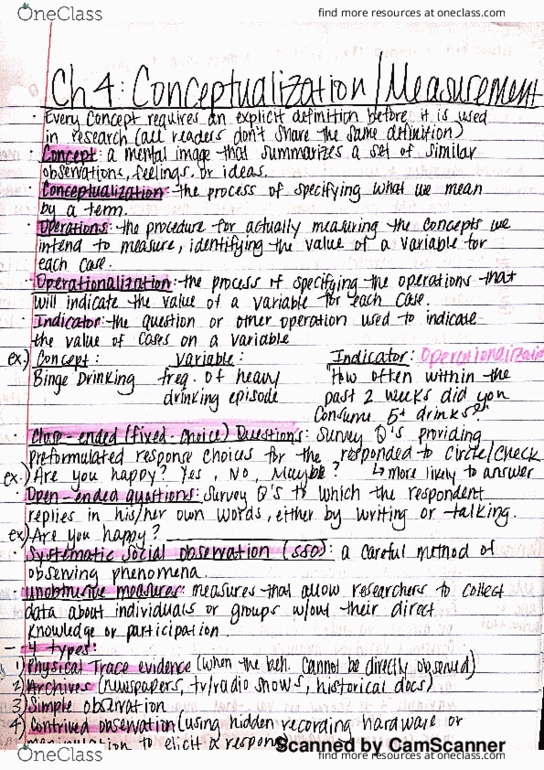 OneClass
find more resources at oneclass.com
Ch 4: Conceptualization/Measurement
· Every concept requires an explicit definition before it is used
in research (all readers don't share the same definition)
· Concept: a mental image that summarizes a set of similar
observations, feelings, or ideas.
· Conceptualization: the process of specifying what we mean
by a term.
· Operations: the procedure for actually measuring the concepts we
intend to measure, identifying the value of a variable for
each case.
· Operationalization: the process of specifying the operations that
will indicate the value of a variable for each case.
· Indicator: the question or other operation used to indicate
the value of cases on a variable
ex.) Concept: Variable: Indicator: Operationalization
Binge Drinking freq. of heavy "How often within the
drinking episode past 2 weeks did you
consume 5+ drinks?"
· Close-ended (fixed-choice) Questions: Survey Q's providing
preformulated response choices for the responded to circle/check
ex.) Are you happy? Yes, No, Maybe? ↳ more likely to answer
· Open-ended questions: Survey Q's to which the respondent
replies in his/her own words, either by writing or talking.
ex) Are you happy? ___________
· Systematic social observation (SSO): a careful method of
observing phenomena.
· unobtrusive measures: measures that allow researchers to collect
data about individuals or groups w/out their direct
knowledge or participation
- 4 types:
1) Physical Trace evidence (when the beh. cannot be directly observed)
2) Archives (newspapers, tv/radio shows, historical docs)
3) Simple observation
4) Contrived observation (using hidden recording hardware or
manipulation to elicit a response)
Scanned by CamScanner
OneClass
find more resources at oneclass.com